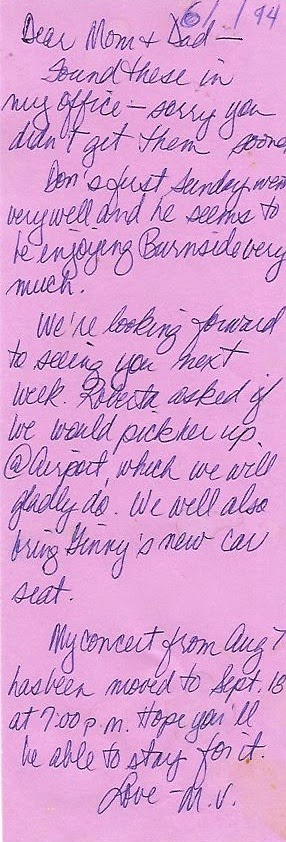 6/1/94
Dear Mom & Dad —
Found these in
my office — sorry you
didn't get them sooner
Don's first Sunday went
very well and he seems to
be enjoying Burnside very
much.
We're looking forward
to seeing you next
week. Roberta asked if
we would pick her up
@ Airport, which we will
gladly do. We will also
bring Ginny's new car
seat.
My concert from Aug 7
has been moved to Sept. 18
at 7:00 p.m. Hope you'll
be able to stay for it.
Love — M.V.